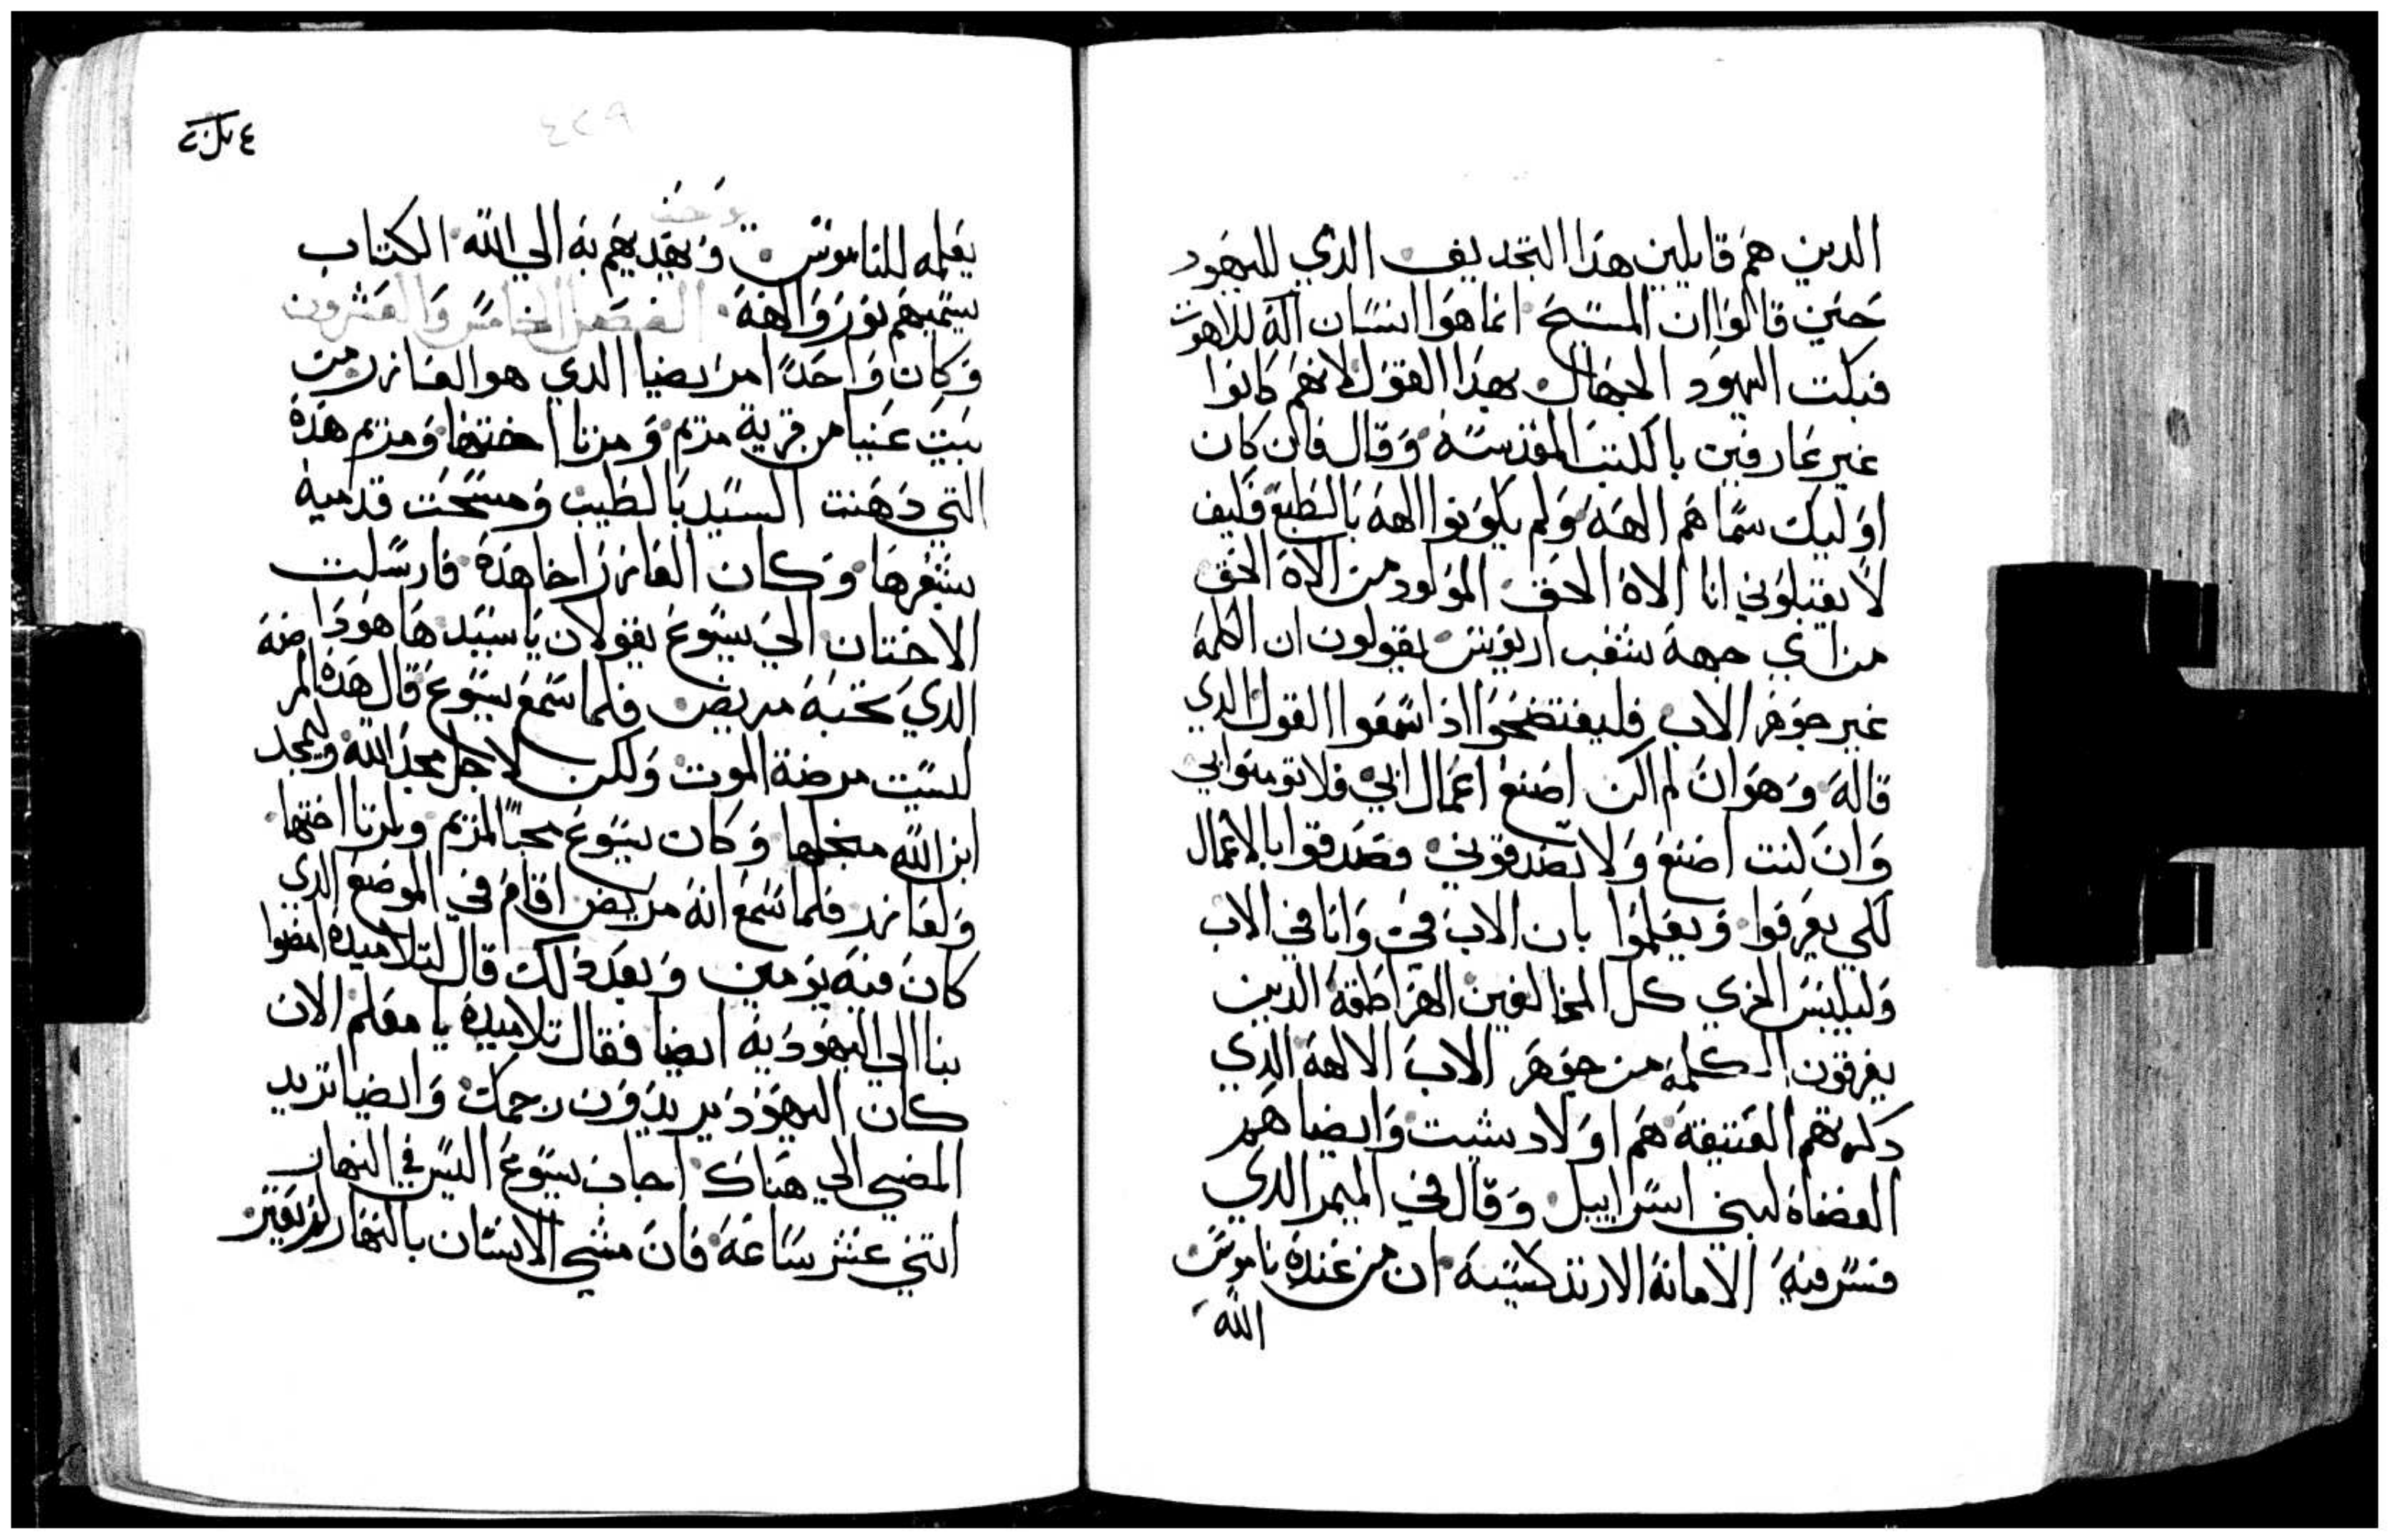 الدين هم قايلين هذا التجديف الذي لليهود
حين قالوا ان المسيح انما هوا انسان اله للاهوت
فبكت اليهود الجهال بهذا القول لانهم كانوا
غير عارفين بالكتب المقدسة وقال فان كان
اوليك سماهم الهة ولم يكونوا الهة بالطبع فكيف
لا يقبلوني انا الاه الحق المولود من الاه الحق
من اي جهة شعب اريوس يقولون ان الكلمة
غير جوهر الاب فليفتضحوا اذا سمعوا القول الدي
قاله وهو ان لم اكن اصنع اعمال ابي فلا تومنوا بي
وان كنت اصنع ولا تصدقوني فصدقوا بالاعمال
لكي يعرفوا ويعلموا بان الاب في وانا في الاب
وليلبس الخزي كل المخالفين الهراطقة الدين
يفرقون الكلمة من جوهر الاب الالهة الدي
دكرتهم العتيقة هم اولاد شيت وايضا هم
القضاة لبني اسراييل وقال في الميمر الدي
فسر فيه الامانة الارتدكسية ان من عنده ناموس
الله
٤٢٨
يوحنا
يعلمه للناموس ويهديهم به الي الله الكتاب
يسميهم نور والهة الفصل الخامس والعشرون
وكان واحدا مريضا الدي هو العازر من
بيت عنيا من قرية مريم ومرتا اختها ومريم هذه
التي دهنت السيد بالطيب ومسحت قدميه
بشعرها وكان العازر اخا هذه فارسلت
الاختان الي يسوع يقولان يا سيد ها هودا
الدي تحبه مريض فلما سمع يسوع قال هذه المرضة
ليست مرضة الموت ولكن لاجل مجد الله وليمجد
ابن الله منجلها وكان يسوع محبا لمريم ومارتا اختها
ولعازر فلما سمع انه مريض اقام في الموضع الدي
كان فيه يومين وبعد دلك قال لتلاميده امضوا
بنا الي اليهودية ايضا فقال تلاميده يا معلم الان
كان اليهود يريدون رجمك وايضا تريد
المضي الي هناك اجاب يسوع اليس في النهار
اتني عشر ساعة فان مشي الانسان بالنهار لم يعثر